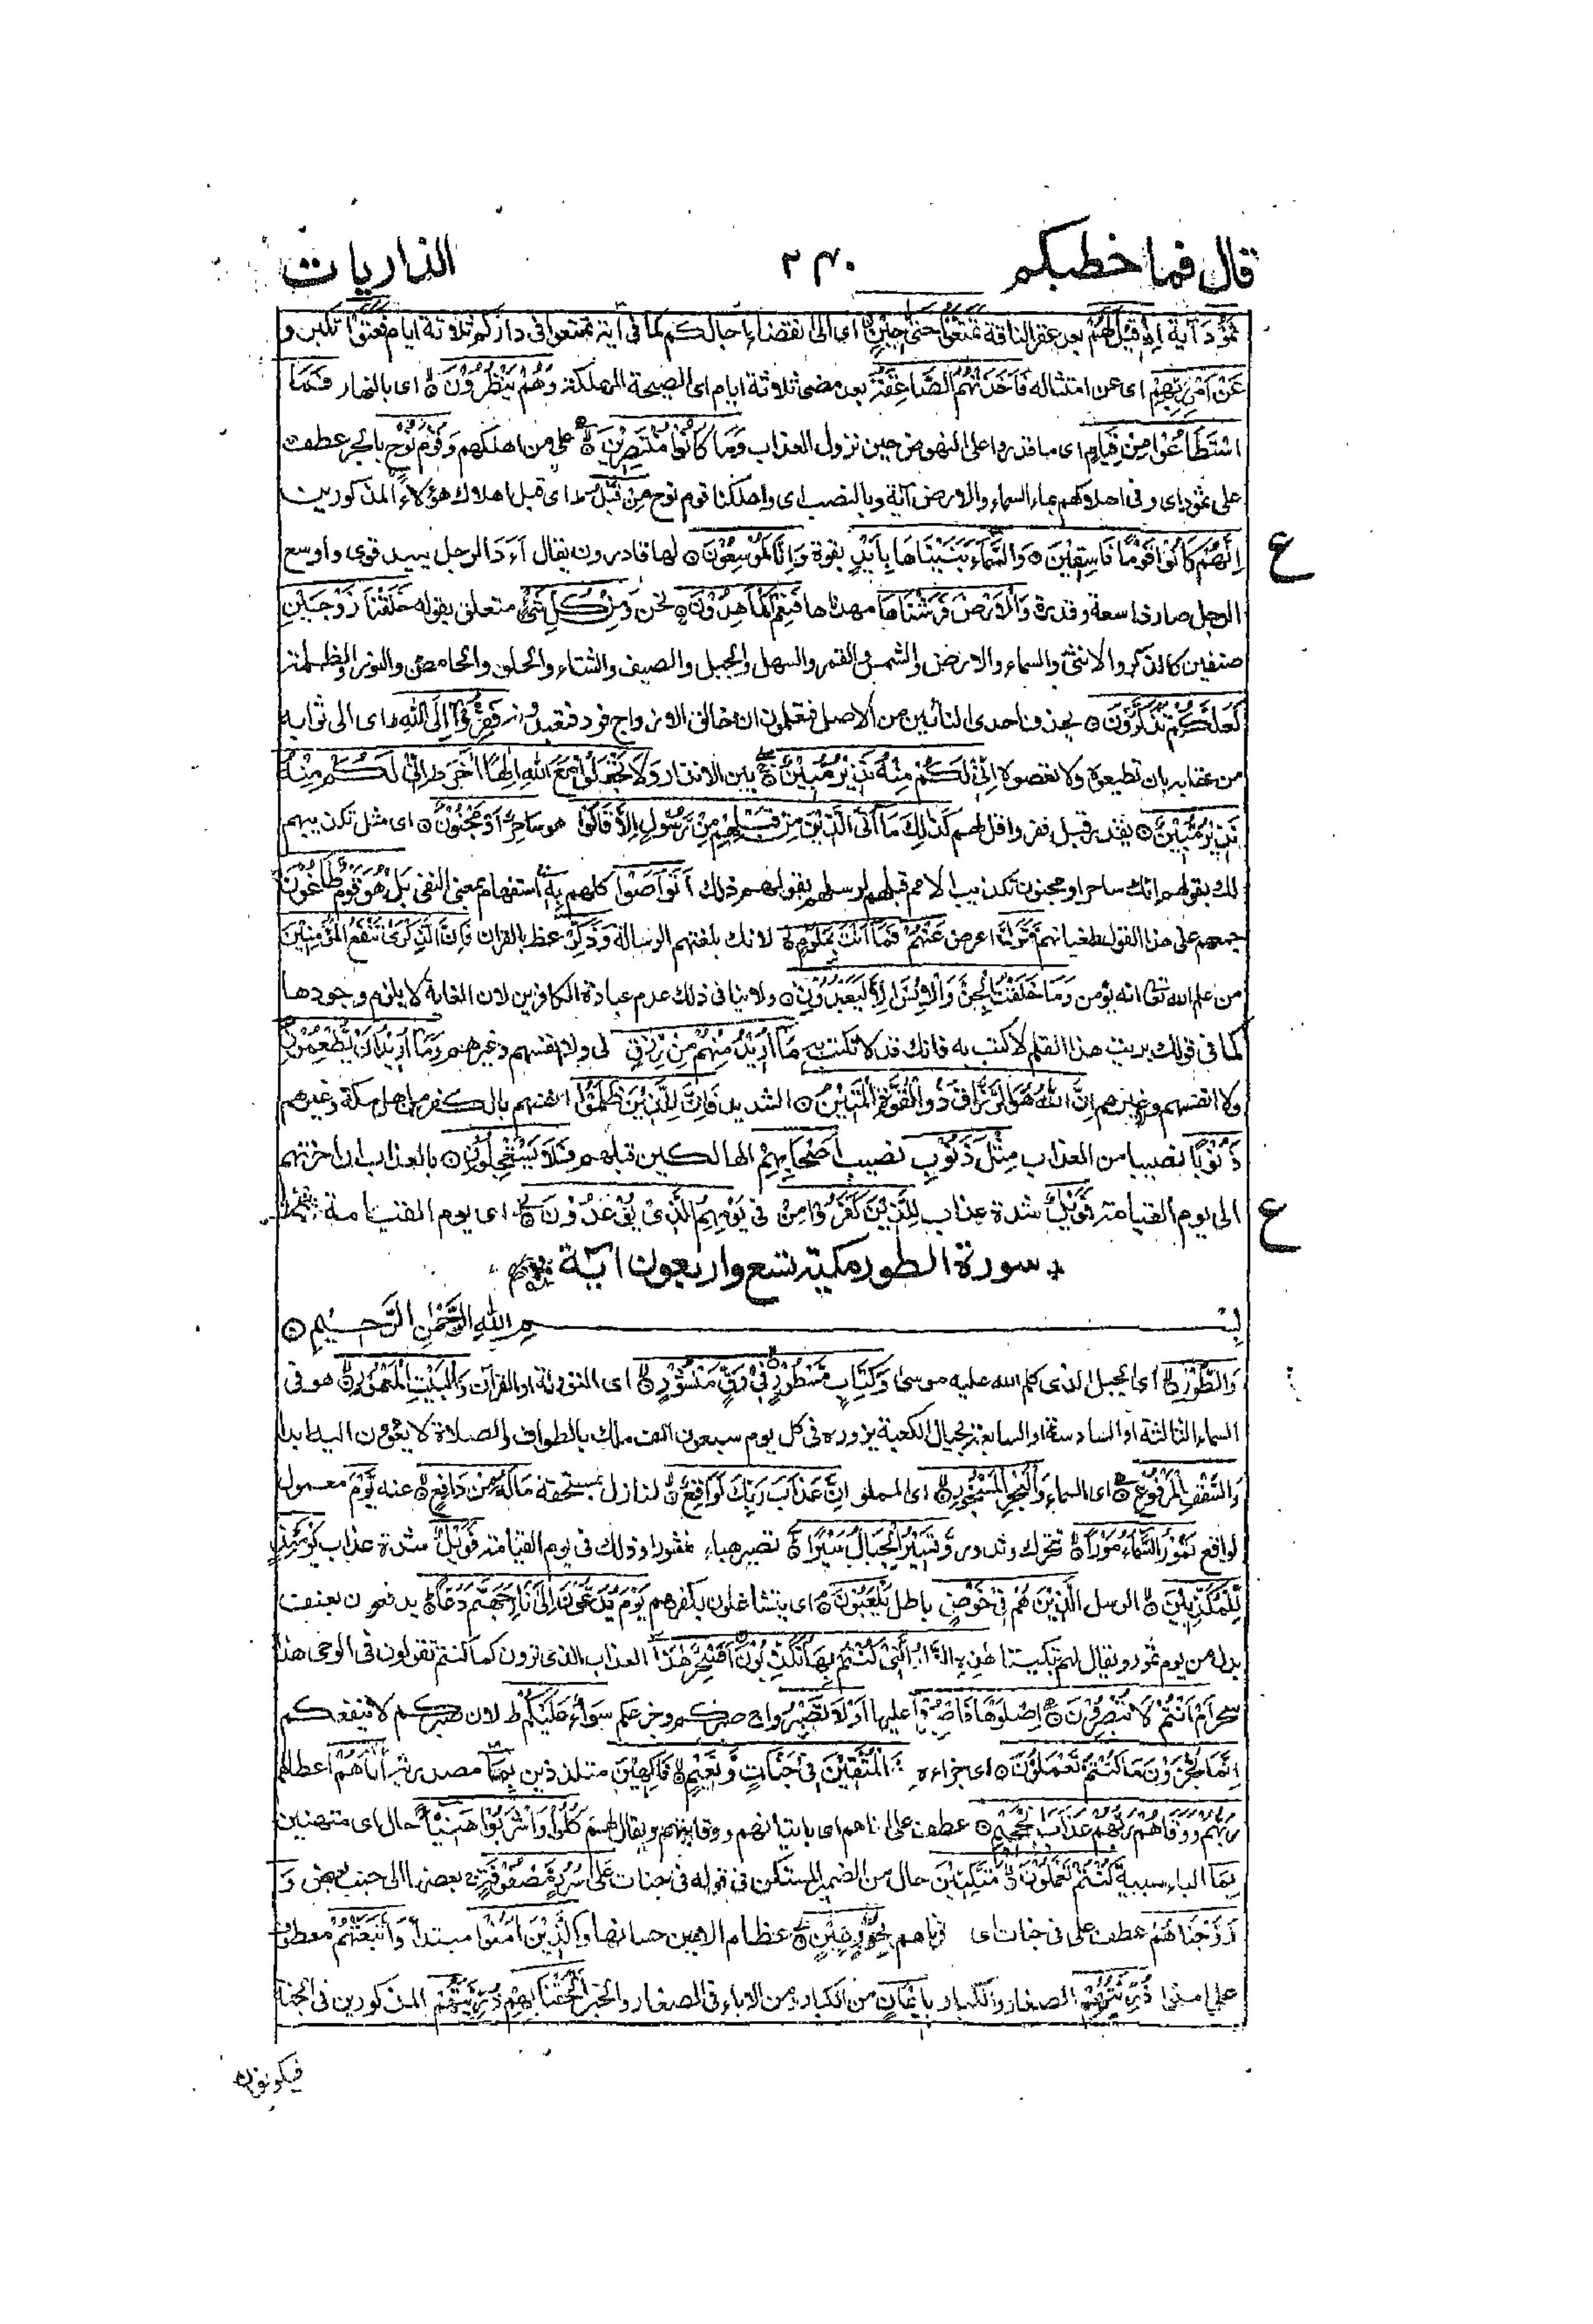 قال فما خطبكم
الذاريات
ثَمُوْدَ آية اِذْ قِيْلَ لَهُمْ بعد عقر الناقة تَمَتَّعُوْا حَتّٰى حِيْنٍ اى الى انقضاء اجالكم كما فى اية تمتعوا فى داركم ثلاثة ايام فَعَتَوْا تكبروا
عَنْ اَمْرِ رَبِّهِمْ اى عن امتثاله فَاَخَذَتْهُمُ الصَّاعِقَةُ بعد مضى ثلاثة ايام اى الصيحة المهلكة وَهُمْ يَنْظُرُوْنَ اى بالنهار فَمَا
اسْتَطَاعُوْا مِنْ قِيَامٍ اى ما قدروا على النهوض حين نزول العذاب وَمَا كَانُوْا مُنْتَصِرِيْنَ على من اهلكهم وَقَوْمَ نُوْحٍ بالجر عطف
على ثمود اى وفى اهلاكهم بماء السماء والارض آية وبالنصب اى واهلكنا قوم نوح مِنْ قَبْلُ اى قبل اهلاك هؤلاء المذكورين
اِنَّهُمْ كَانُوْا قَوْمًا فَاسِقِيْنَ وَالسَّمَاءَ بَنَيْنَاهَا بِاَيْدٍ بقوة وَاِنَّا لَمُوْسِعُوْنَ لها قادرون يقال آدَ الرجل يييد قوى واوسع
الرجل صار ذا سعة وقدرة وَالْاَرْضَ فَرَشْنَاهَا مهدناها فَنِعْمَ الْمَاهِدُوْنَ نحن وَمِنْ كُلِّ شَىْءٍ متعلق بقوله خَلَقْنَا زَوْجَيْنِ
صنفين كالذكر والانثى والسماء والارض والشمس والقمر والسهل والجبل والصيف والشتاء والحلو والحامض والنور والظلمة
لَعَلَّكُمْ تَذَكَّرُوْنَ بحذف احدى التائين من الاصل فتعلمون ان خالق الازواج فرد فتعبدونه فَفِرُّوْا اِلَى اللهِ اى الى ثوابه
من عقابه بان تطيعوه ولا تعصوه اِنِّىْ لَكُمْ مِنْهُ نَذِيْرٌ مُّبِيْنٌ بين الانذار وَلَا تَجْعَلُوْا مَعَ اللهِ اِلٰهًا اٰخَرَ اِنِّىْ لَكُمْ مِنْهُ
نَذِيْرٌ مُّبِيْنٌ يقدر قبل ففروا قل لهم كَذٰلِكَ مَا اَتَى الَّذِيْنَ مِنْ قَبْلِهِمْ مِنْ رَّسُوْلٍ اِلَّا قَالُوْا هو سَاحِرٌ اَوْ مَجْنُوْنٌ اى مثل تكذيبهم
لك بقولهم انك ساحر او مجنون تكذيب الامم قبلهم لرسلهم بقولهم ذلك اَتَوَاصَوْا كلهم بِهٖ استفهام بمعنى النفى بَلْ هُمْ قَوْمٌ طَاغُوْنَ
جمعهم على هذا القول طغيانهم فَتَوَلَّ اعرض عَنْهُمْ فَمَا اَنْتَ بِمَلُوْمٍ لانك بلغتهم الرسالة وَذَكِّرْ عظ بالقران فَاِنَّ الذِّكْرٰى تَنْفَعُ الْمُؤْمِنِيْنَ
من علم الله تعالى انه يؤمن وَمَا خَلَقْتُ الْجِنَّ وَالْاِنْسَ اِلَّا لِيَعْبُدُوْنِ ولا ينافى ذلك عدم عبادة الكافرين لان الغاية لا يلزم وجودها
كما فى قولك بريت هذا القلم لاكتب به فانك قد لا تكتب به مَا اُرِيْدُ مِنْهُمْ مِنْ رِّزْقٍ لى ولا نفسهم وغيرهم وَمَا اُرِيْدُ اَنْ يُّطْعِمُوْنِ
ولا انفسهم وغيرهم اِنَّ اللهَ هُوَ الرَّزَّاقُ ذُو الْقُوَّةِ الْمَتِيْنُ الشديد فَاِنَّ لِلَّذِيْنَ ظَلَمُوْا انفسهم بالكفر من اهل مكة وغيرهم
ذَنُوْبًا نصيبا من العذاب مِثْلَ ذَنُوْبِ نصيب اَصْحَابِهِمْ الهالكين قبلهم فَلَا يَسْتَعْجِلُوْنِ بالعذاب ان اخرتهم
الى يوم القيامة فَوَيْلٌ شدة عذاب لِلَّذِيْنَ كَفَرُوْا مِنْ فى يَوْمِهِمُ الَّذِىْ يُوْعَدُوْنَ اى يوم القيامة
سورة الطور مكية تسع واربعون اية
بسم الله الرَّحْمٰنِ الرَّحِيْمِ
وَالطُّوْرِ اى الجبل الذى كلم الله عليه موسى وَكِتَابٍ مَّسْطُوْرٍ فِىْ رَقٍّ مَنْشُوْرٍ اى التورىة او القرآن وَالْبَيْتِ الْمَعْمُوْرِ هو فى
السماء الثالثة او السادسة او السابعة بحيال الكعبة يزوره فى كل يوم سبعون الف ملك بالطواف والصلاة لا يعودون اليه ابدا
وَالسَّقْفِ الْمَرْفُوْعِ اى السماء وَالْبَحْرِ الْمَسْجُوْرِ اى المملو اِنَّ عَذَابَ رَبِّكَ لَوَاقِعٌ لنازل بمستحقه مَالَهٗ مِنْ دَافِعٍ عنه يَّوْمَ معمول
لواقع تَمُوْرُ السَّمَاءُ مَوْرًا تتحرك وتدور وَّتَسِيْرُ الْجِبَالُ سَيْرًا تصير هباء منثورا وذلك فى يوم القيامة فَوَيْلٌ شدة عذاب يَوْمَئِذٍ
لِّلْمُكَذِّبِيْنَ الرسل الَّذِيْنَ هُمْ فِىْ خَوْضٍ باطل يَلْعَبُوْنَ اى يتشاغلون بكفرهم يَوْمَ يُدَعُّوْنَ اِلٰى نَارِ جَهَنَّمَ دَعًّا يدفعون بعنف
بدل من يوم تمور ويقال لهم تبكيتا هٰذِهِ النَّارُ الَّتِىْ كُنْتُمْ بِهَا تُكَذِّبُوْنَ اَفَسِحْرٌ هٰذَا العذاب الذى ترون كما كنتم تقولون فى الوحى هذا
سحر اَمْ اَنْتُمْ لَا تُبْصِرُوْنَ اِصْلَوْهَا فَاصْبِرُوْا عليها اَوْ لَا تَصْبِرُوْا صبركم وجزعكم سَوَاءٌ عَلَيْكُمْ لان صبركم لا ينفعكم
اِنَّمَا تُجْزَوْنَ مَا كُنْتُمْ تَعْمَلُوْنَ اى جزاءه الْمُتَّقِيْنَ فِىْ جَنَّاتٍ وَّنَعِيْمٍ فَاكِهِيْنَ متلذذين بِمَا مصدرية اٰتَاهُمْ اعطاهم
رَبُّهُمْ وَوَقَاهُمْ رَبُّهُمْ عَذَابَ الْجَحِيْمِ عطف على اتاهم اى باتيانهم ووقايتهم ويقال لهم كُلُوْا وَاشْرَبُوْا هَنِيْئًا حال اى متهنين
بِمَا الباء سببية كُنْتُمْ تَعْمَلُوْنَ مُتَّكِئِيْنَ حال من الضمير المستكن فى قوله فى جنات عَلٰى سُرُرٍ مَّصْفُوْفَةٍ بعضها الى جنب بعض وَ
زَوَّجْنَاهُمْ عطف على فى جنات اى قرناهم بِحُوْرٍ عِيْنٍ عظام الاعين حسانها وَالَّذِيْنَ اٰمَنُوْا مبتدأ وَاتَّبَعَتْهُمْ معطوف
على امنوا ذُرِّيَّتُهُمْ الصغار والكبار بِاِيْمَانٍ من الكبار ومن الاباء فى الصغار والخبر اَلْحَقْنَا بِهِمْ ذُرِّيَّتَهُمْ المذكورين فى الجنة
فيكونون